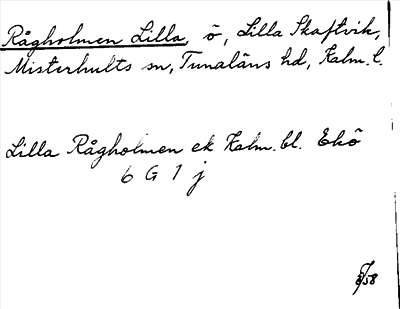 Rågholmen Lilla, ö, Lilla Skaftvik,
Misterhults sn, Tunaläns hd, Kalm. l.
Lilla Rågholmen ek Kalm. bl. Ekö
6 G 1 j
/58